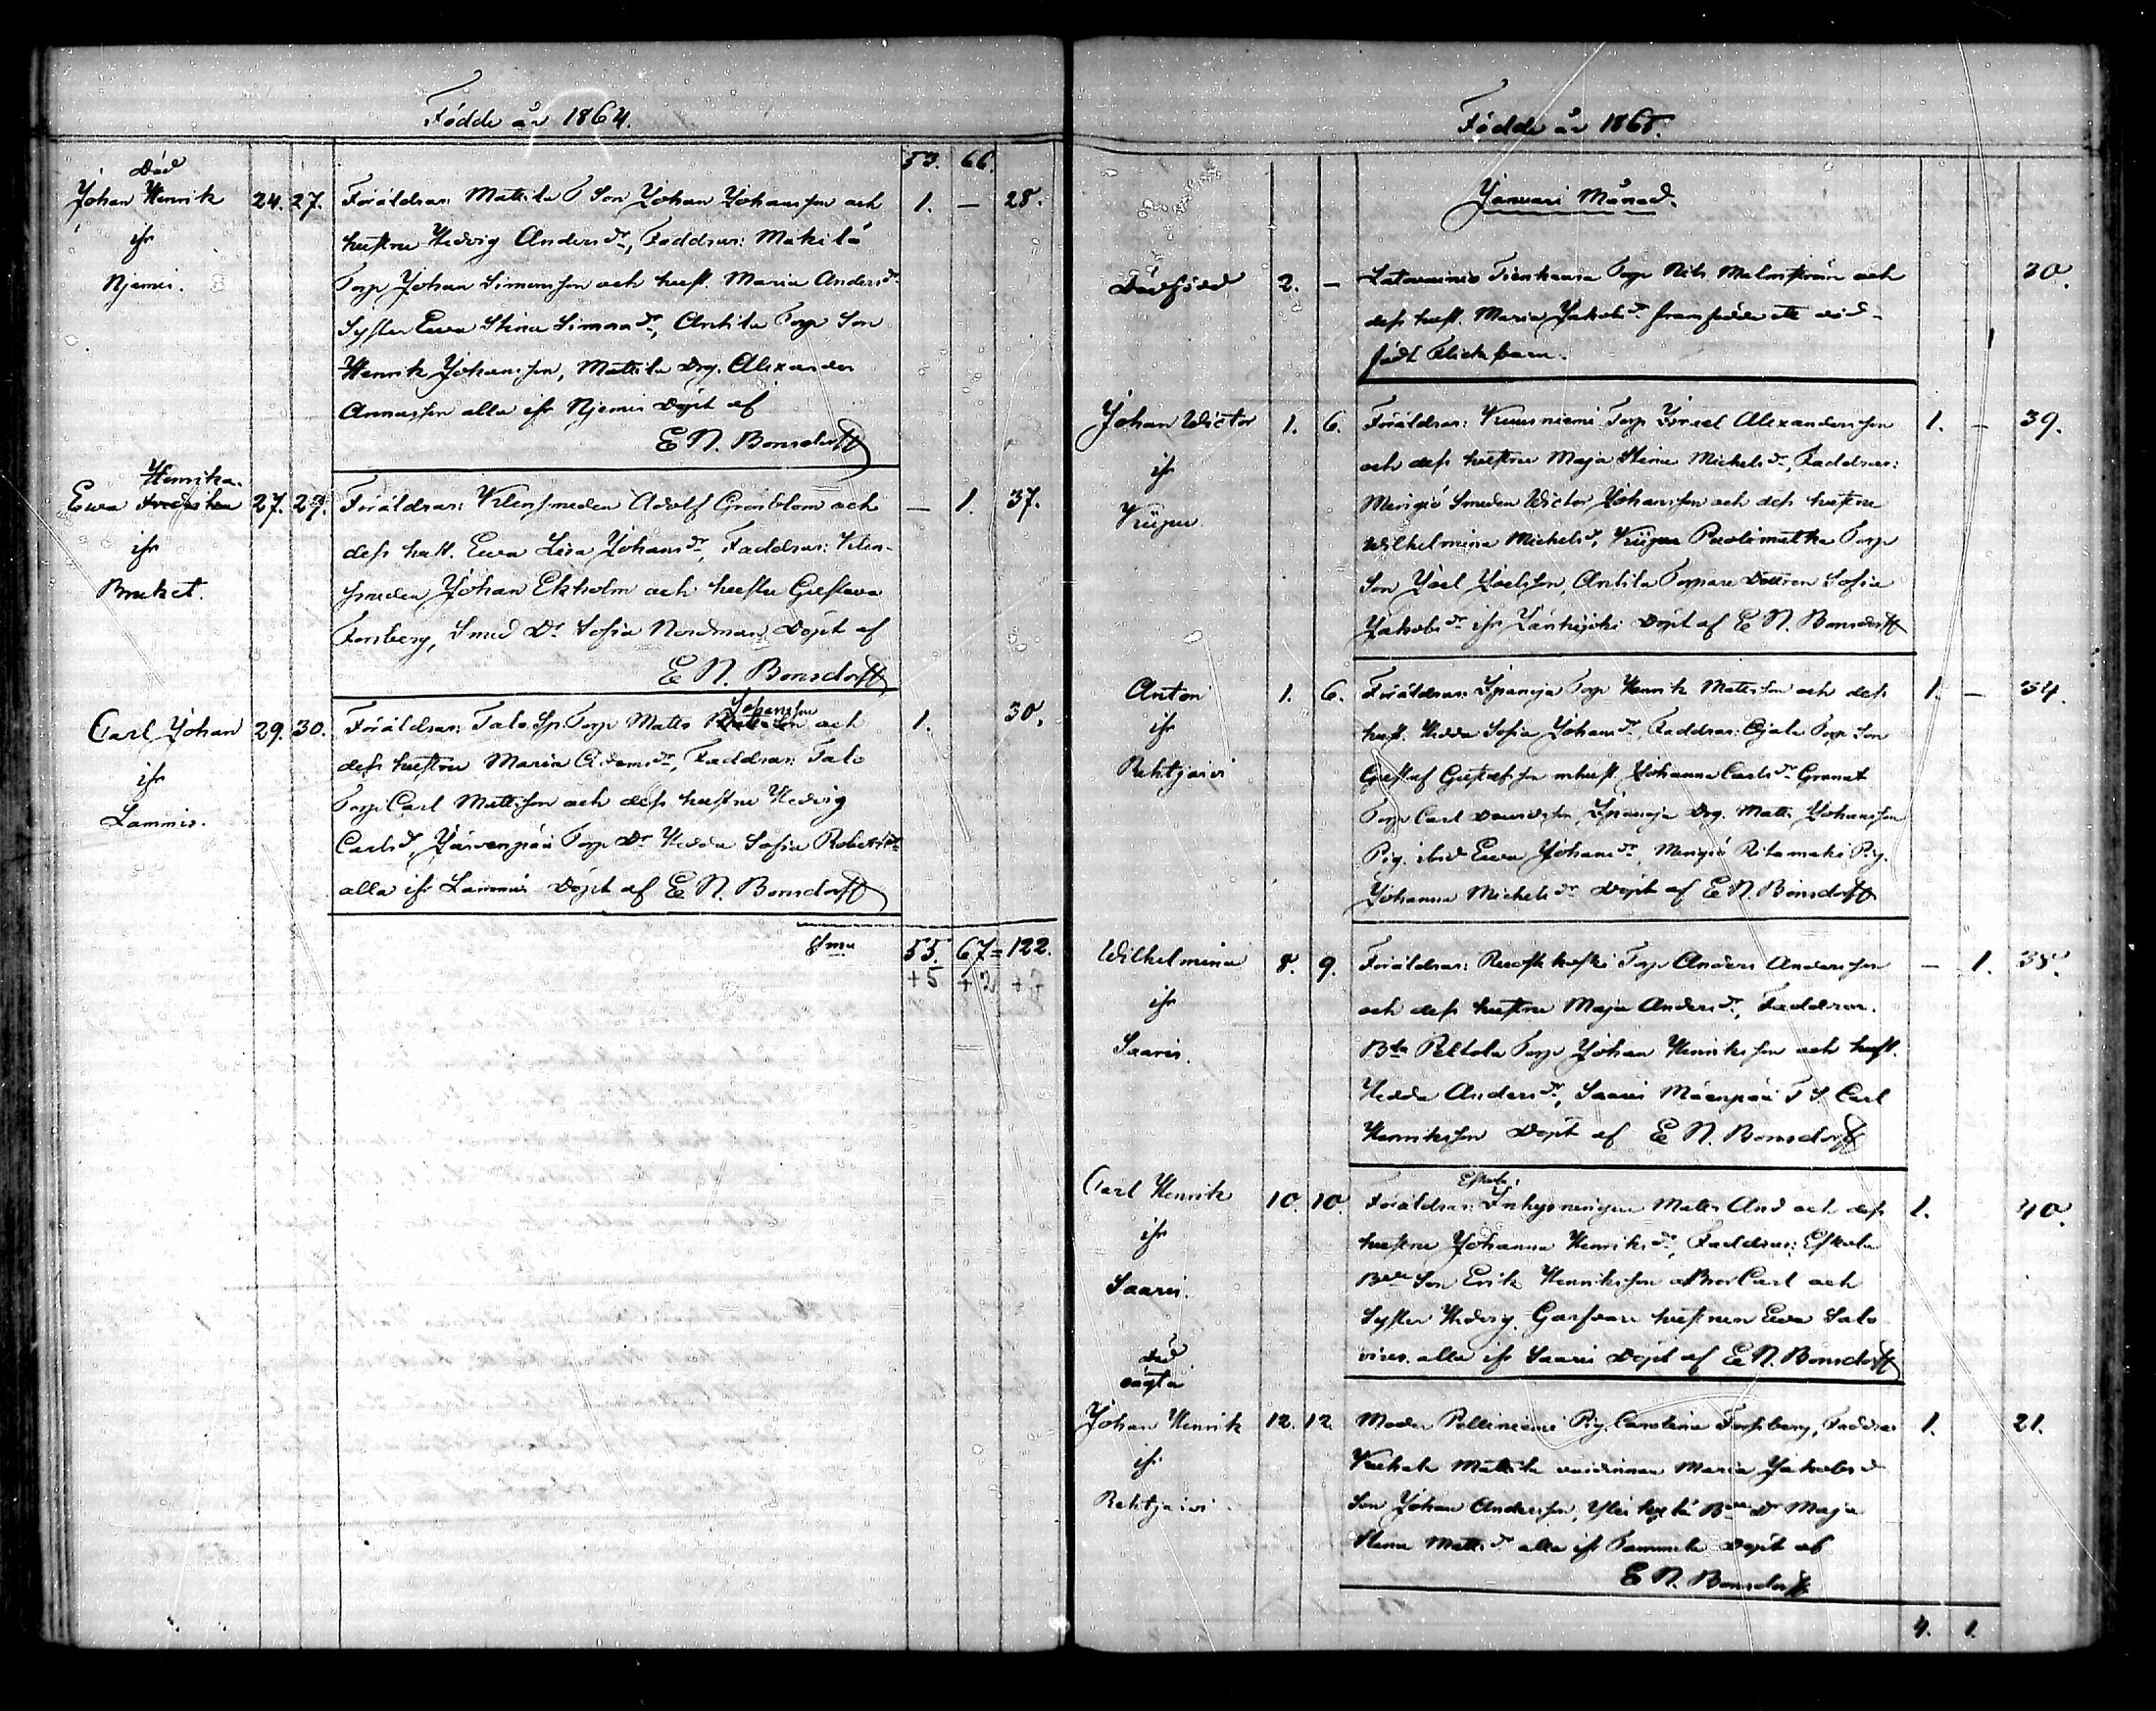 Födde år 1864.
53. 66.
Död
Johan Henrik 24. 27. Föräldrar: Mattila T Son Johan Johansson och 1. — 28.
ifr hustru Hedvig Anders dr, Faddrar: Mäkilä
Njemis. Torp Johan Simonsson och hust. Maria Anders dr
Syster Ewa Stina Simons dr, Anttila Torp Son
Henrik Johansson, Mattila Drg. Alexander
alla ifr Njemis Döpt af
E N. Bonsdorff
Henrika.
Ewa 27. 29. Föräldrar: Klensmeden Adolf Grönblom och — 1. 37.
ifr dess hust. Ewa Lisa Johans dr, Faddrar: Klen-
Bruket. smeden Johan Ekholm och hustru Gustava
Forsberg, Smed Dr Sofia Nordman Döpt af
E N. Bonsdorff
Johansson
Carl Johan 29. 30. Föräldrar: Talo Torp Matts och 1. 30.
ifr dess hustru Maria Adams dr, Faddrar: Talo
Lammis. Torp Carl Mattsson och dess hustru Hedvig
Carls dr, Järvenpää Torp Dr Hedda Sofia Roberts dr
alla ifr Lammis Döpt af E N. Bonsdorff
Sma 55. 67 = 122.
+5 +2 +7
Födde år 1865.
Januari Månad.
Dödfödd 2. — Torp Nils Malmström och 30.
dess hust. Maria Jakobs dr framfödde ett död-
födt Flickbarn.
Johan Wictor 1. 6. Föräldrar: Kuusniemi Torp Israel Alexandersson 1. — 39.
ifr och dess hustru Maja Stina Michels dr, Faddrar:
Kiipu Mengiö Smeden Wictor Johansson och dess hustru
Wilhelmina Michels dr, Kiipu Torp
Son Joel Joelsson, Anttila Torpare Dottren Sofia
Jakobs dr ifr Döpt af E N. Bonsdorff
Anton 1. 6. Föräldrar: Torp Henrik Mattsson och dess 1. — 34.
ifr hust. Hedda Sofia Johans dr, Faddrar: Ojala Torp Son
Rehtjärvi Gustaf Gustafsson m hust. Johanna Carls dr Granat
Torp Carl Davidsson Drg. Matts Johansson
Pig. ibid Ewa Johans dr, Mengiö Pig.
Johanna Michels dr Döpt af E N. Bonsdorff
Wilhelmina 8. 9. Föräldrar: Torp Anders Andersson — 1. 38.
ifr och dess hustru Maja Anders dr, Faddrar.
Saaris. Peltola Torp Johan Henriksson och hust.
Hedda Anders dr, Saaris Mäenpää T S. Carl
Henriksson Döpt af E N. Bonsdorff
Eskola
Carl Henrik 10. 10. Föräldrar: Inhysningen Matts And och dess 1. 40.
ifr hustru Johanna Henriks dr, Faddrar: Eskola
Saaris. Son Erik Henriksson Bror Carl och
Syster Hedvig, Garfvare hustrun Ewa Salo
alla ifr Saaris Döpt af E N. Bonsdorff
Död
oägta
Johan Henrik 12. 12 Moder Pellinieni Pig. Carolina Forssberg, Faddrar 1. 21.
ifr Mattila Maria Jakobs dr
Rehtjärvi Son Johan Andersson, Dr Maja
Stina Matts dr alla ifr Tammela Döpt af
E N. Bonsdorff
4. 1.